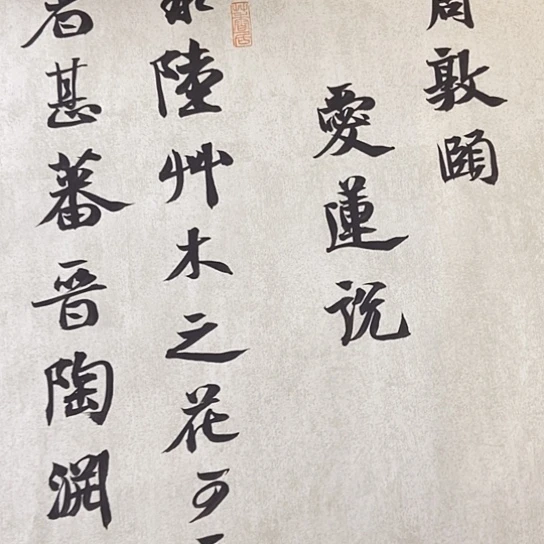 周敦頤
愛蓮說
水陸艸木之花可
者甚蕃晉陶淵